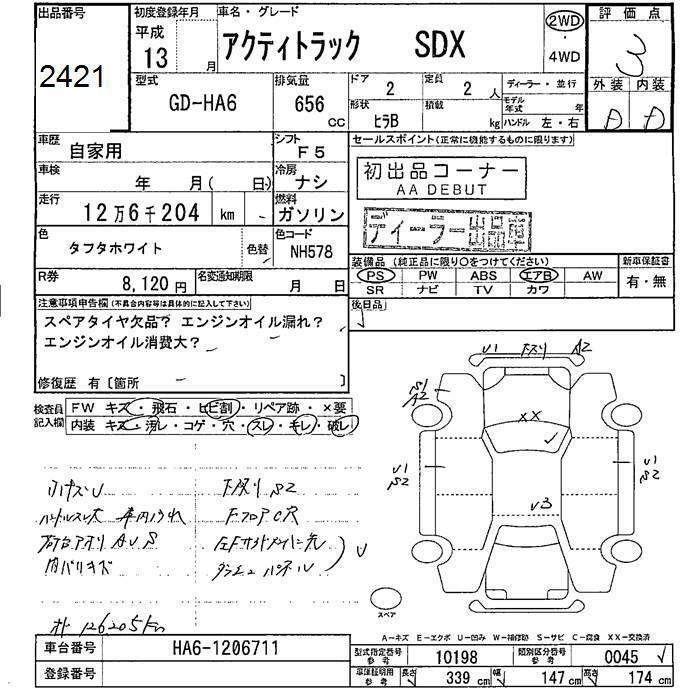 出品番号
2421
初度登録年月
平成
13 月
車名・グレード
アクティトラック SDX
2WD
・
4WD
評価点
3
外装 内装
D D
型式
GD-HA6
排気量
656
CC
ドア
2
定員
2 人
ディーラー・並行
形状
ヒラB
積載
kg
モデル年式
年
ハンドル 左・右
車歴
自家用
シフト
F5
セールスポイント(正常に機能するものに限ります)
車検
年 月( 日)
冷房
ナシ
初出品コーナー
AA DEBUT
走行
12万6千204 km
燃料
ガソリン
ディーラー出品車
色
タフタホワイト
色替
色コード
NH578
装備品 (純正品に限り○をつけてください)
新車保証書
PS PW ABS エアB AW
有・無
SR ナビ TV カワ
R券
8,120円
名変通知期限
月 日
後日品
注意事項申告欄(不具合内容等は具体的に記入して下さい)
スペアタイヤ欠品? エンジンオイル漏れ?
エンジンオイル消費大?
修復歴 有〔箇所 〕
検査員
記入欄
FW キズ・飛石・ヒビ割・リペア跡・×要
内装 キズ・汚レ・コゲ・穴・スレ・キレ・破レ
U1 下スリ A2
S1
A2
XX
U1
S2
U1
S2
U3
下廻り S2
ハンドルスレ大 車内汚れ
FフロアC穴
荷台アオリ AUS
内バリキズ
スペア
オド 126205Km
A-キズ E-エクボ U-凹み W-補修跡 S-サビ C-腐食 XX-交換済
車台番号
HA6-1206711
型式指定番号
参考
10198
類別区分番号
参考
0045
登録番号
車庫証明用
参考
長さ
339 cm
幅
147 cm
高さ
174 cm